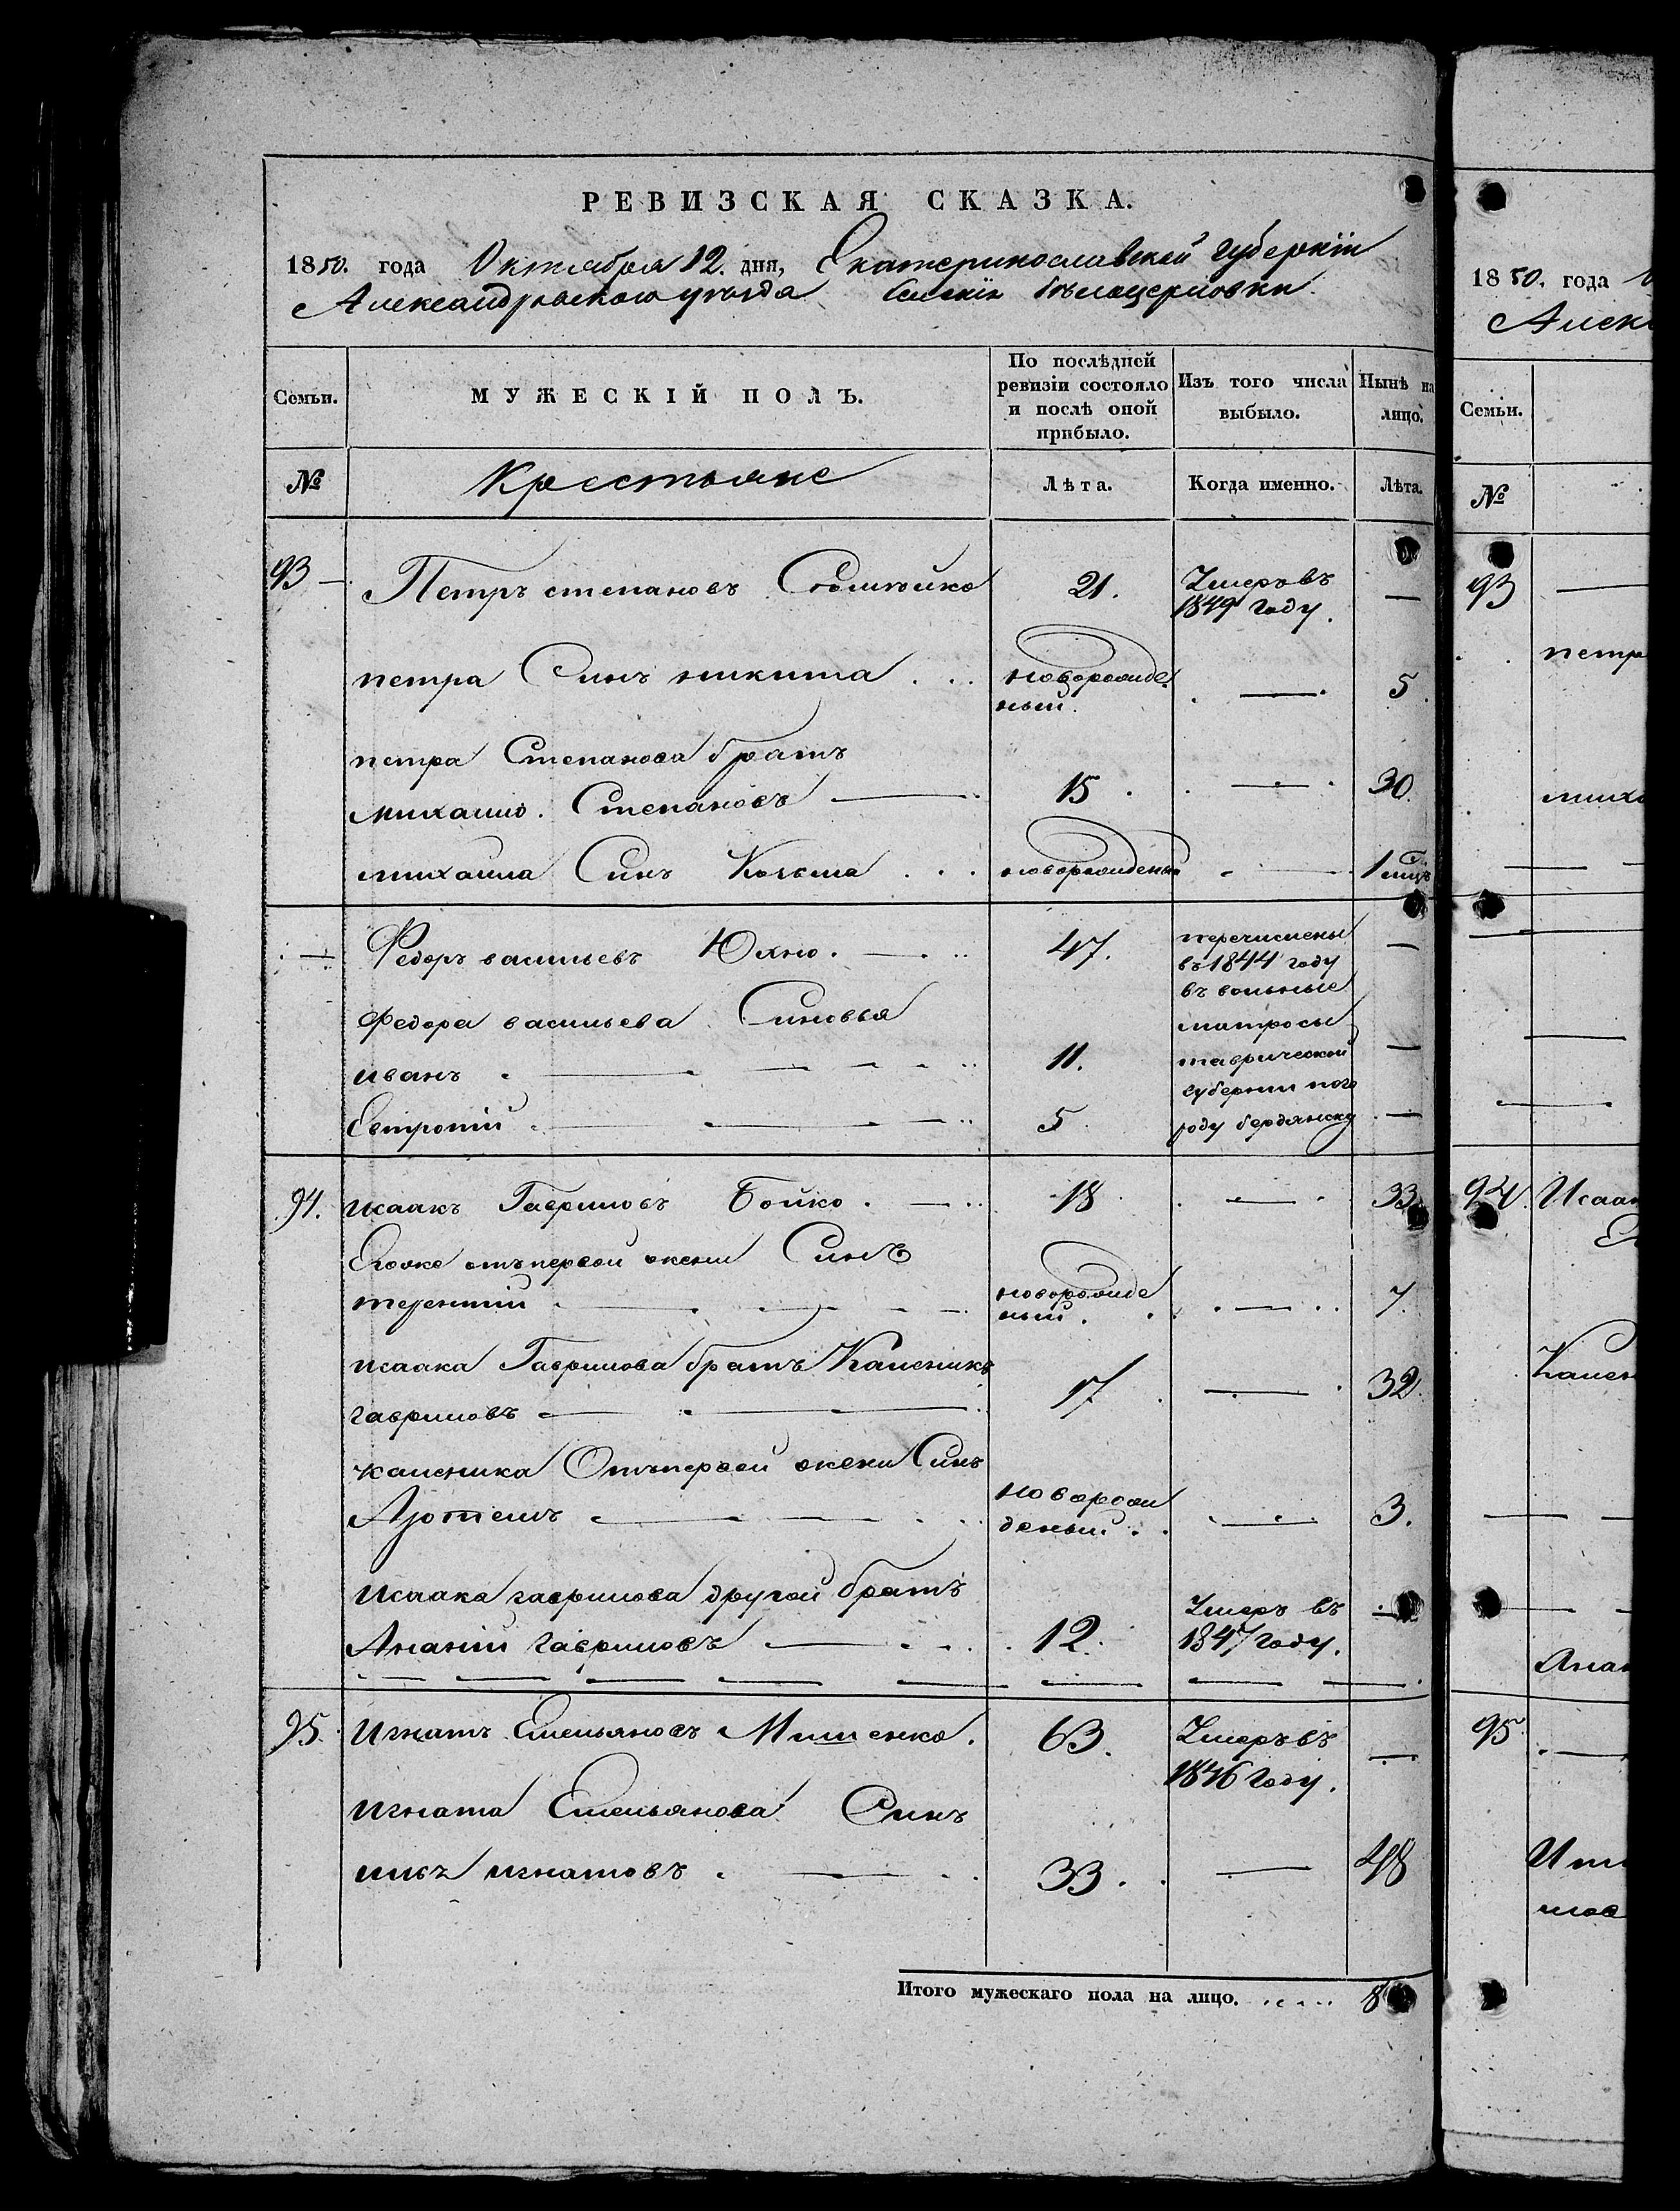 РЕВИЗСКАЯ СКАЗКА.
1850. года Октября 12. дня, Екатеринославской губернiи
Александровского уѣзда Селенiя Бѣлоцерковки.
Семьи.
МУЖЕСКІЙ ПОЛЪ.
По послѣдней ревизіи состояло и послѣ оной прибыло.
Изъ того числа выбыло.
Нынѣ на лицо.
№
Крестьяне
Лѣта.
Когда именно.
Лѣта.
93 — Петръ степановъ 21. Умеръ въ 1849 году. —
петра Синъ никита . . . новорожде ный. — 5.
петра Степанова братъ
михаило. Степановъ — 15 . — 30.
михаила Синъ Козьма . . . новорожденый — 1 мцъ
— Федоръ васильевъ Юхно. — 47. перечислены въ 1844 году въ вольные матросы таврической губернии по го роду бердянску —
Федора васильева Синовья
иванъ — 11. —
Евтропiй — 5. —
94. исаакъ Гавриловъ Бойко. — 18 — 33.
Его же отъ первой жени Синъ
терентiй — новорожде ный. — 7.
исаака Гаврилова братъ Каленикъ
гавриловъ — 17 — 32.
каленика Отъ первой жени Синъ
Артемъ — новорож деный. — 3.
исаака гаврилова другой братъ
Ананiй гавриловъ — 12. Умеръ въ 1847 году. —
95. Игнатъ Емельяновъ 63. Умеръ въ 1846 году. —
игната Емельянова Синъ
игнатовъ . — 33. — 48
Итого мужескаго пола на лицо. . . . . . 8
1850. года
Алекс
Семьи.
№
93 —
петра
миха
94. Исаак
Кален
Анан
95. —